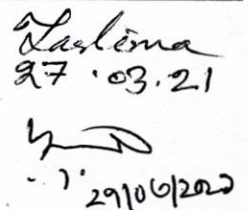 Taslima
27.03.21
29/06/2020